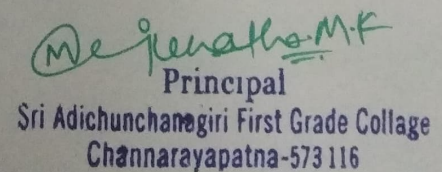 Manjunatha.M.K
Principal
Sri Adichunchanagiri First Grade Collage
Channarayapatna-573 116